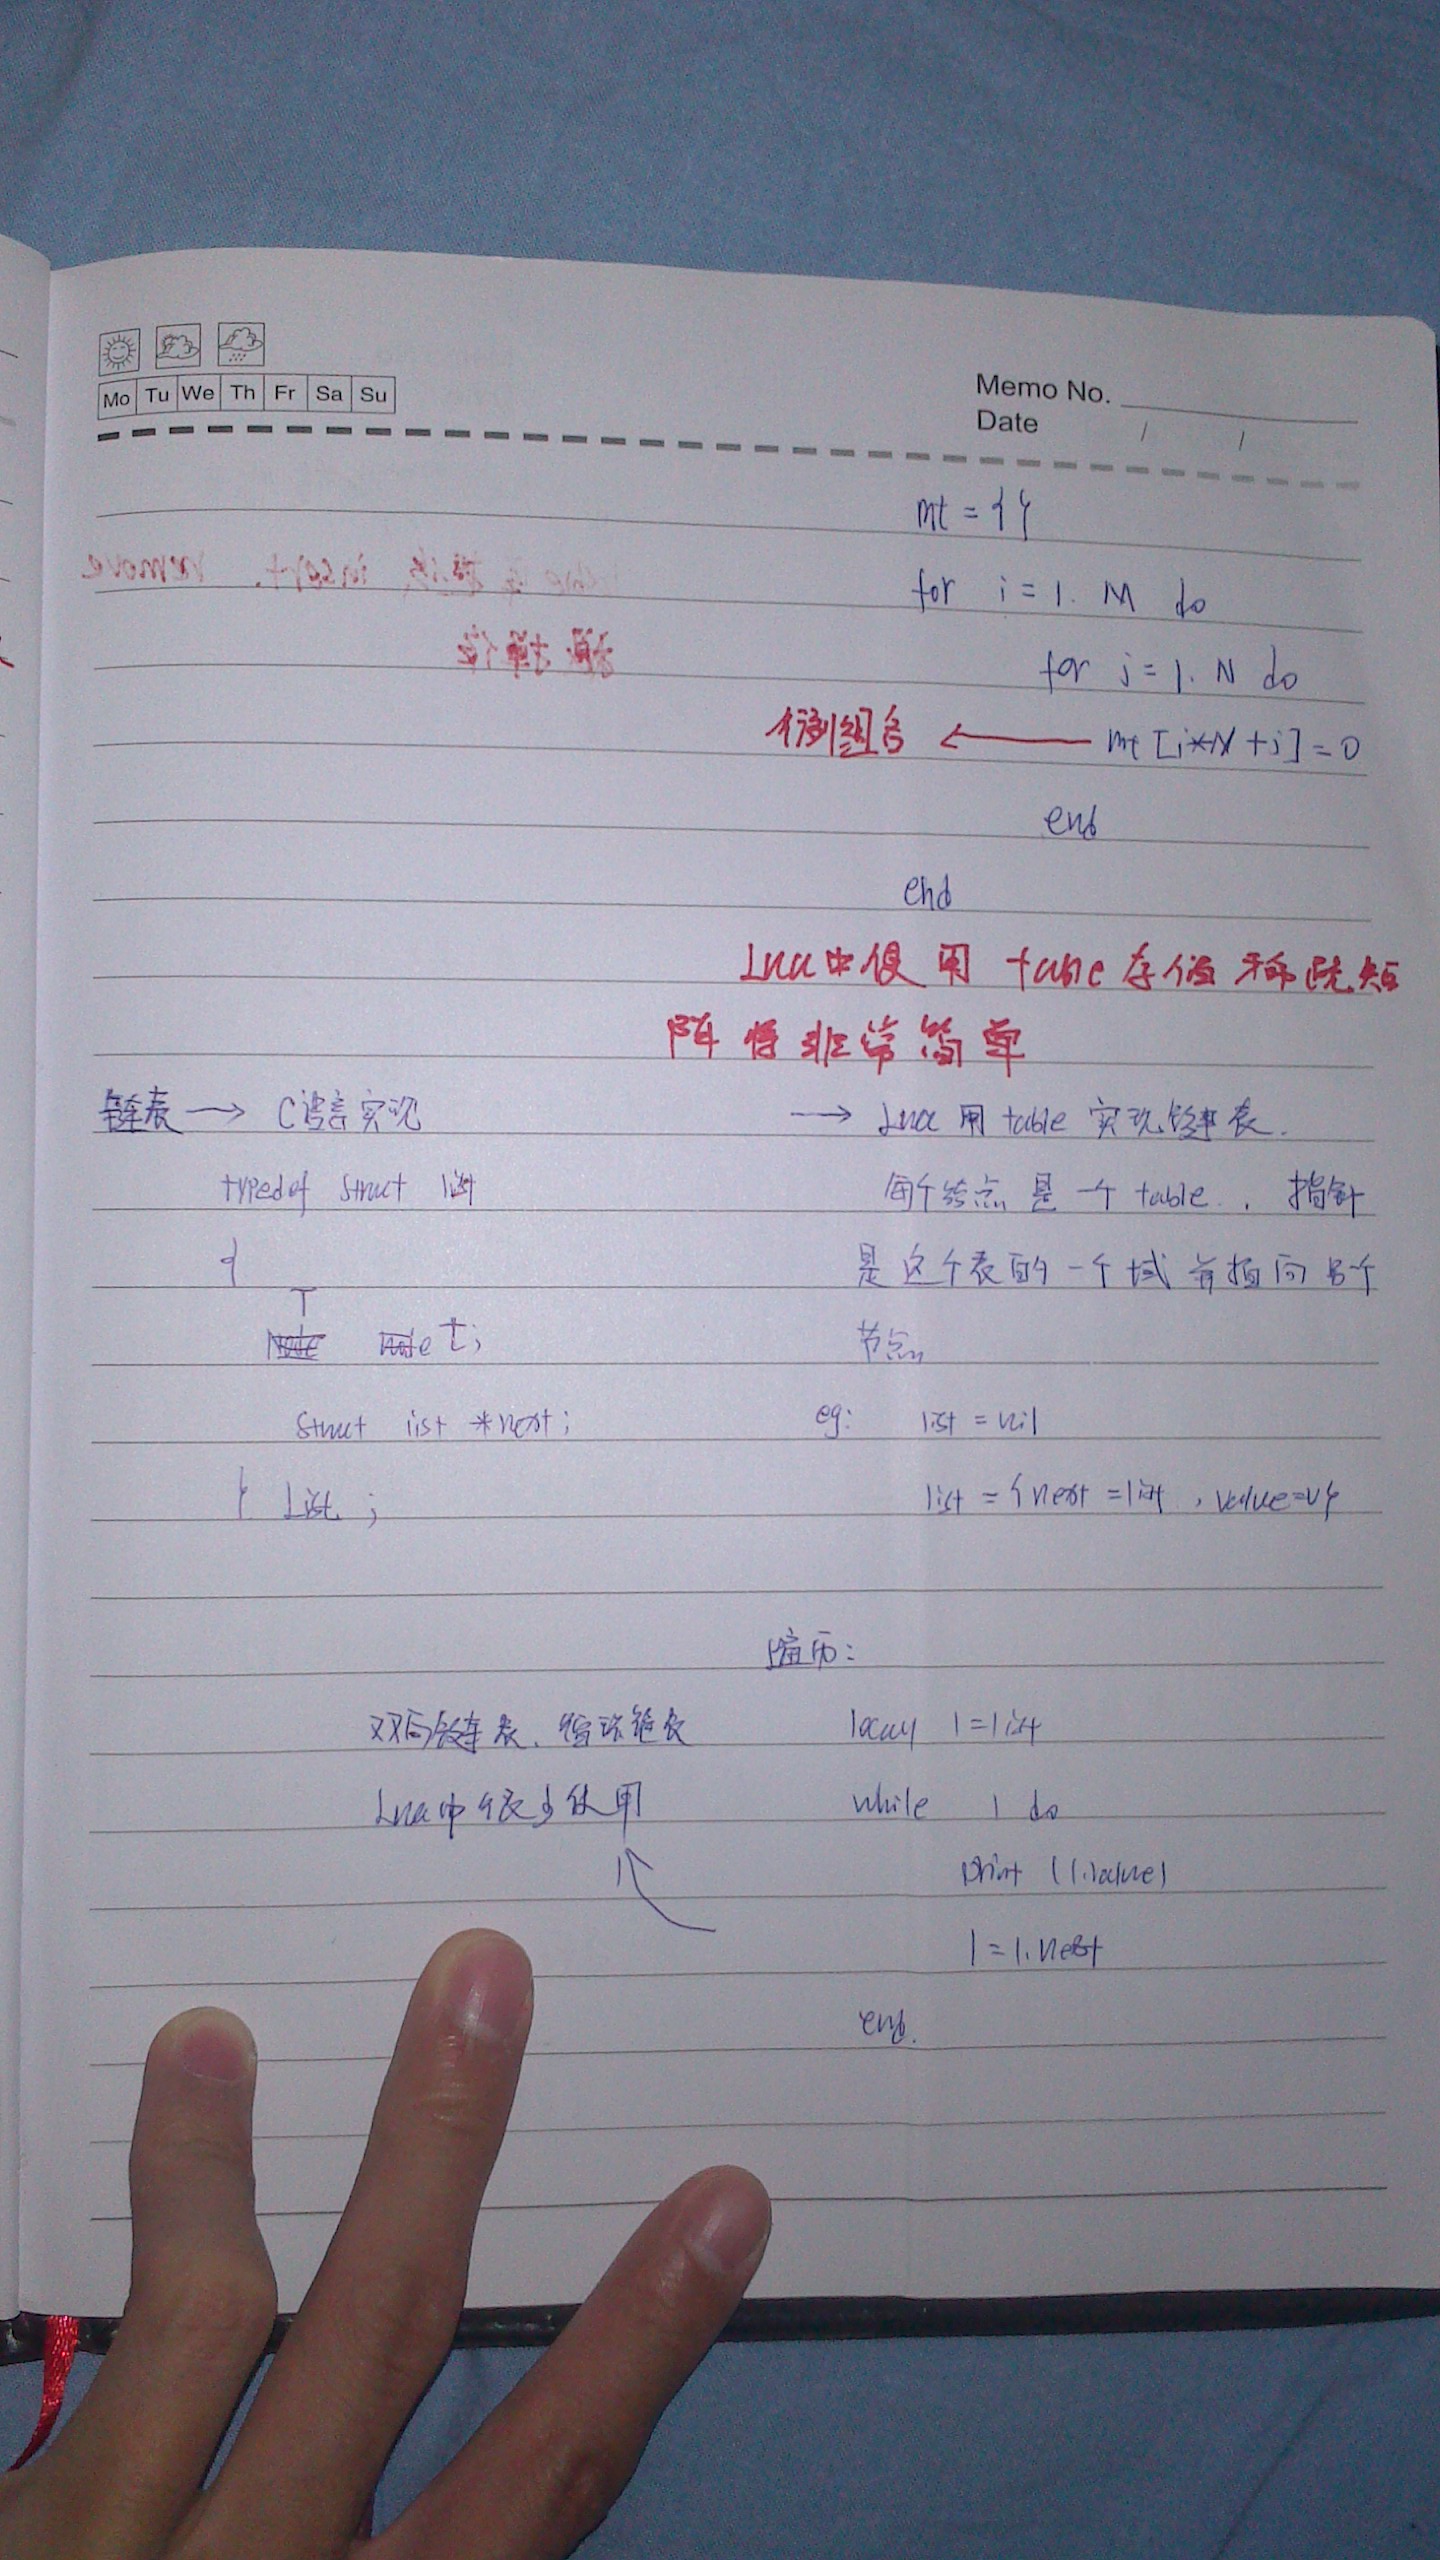 Mo Tu We Th Fr Sa Su
Memo No.
Date / /
mt = {}
for i = 1, M do
for j = 1, N do
行列组合 ← mt [i*N + j] = 0
end
end
Lua中使用 table 存储稀疏矩
阵将非常简单
链表 → C语言实现
typedef struct list
{
T
t;
struct list *next;
} List;
→ Lua 用 table 实现链表.
每个结点是一个 table, 指针
是这个表的一个域 并指向另个
节点
eg: list = nil
list = {next = list, value=v}
遍历:
local l = list
while l do
print (l.value)
l = l.next
end.
双向链表、循环链表
Lua中很少使用